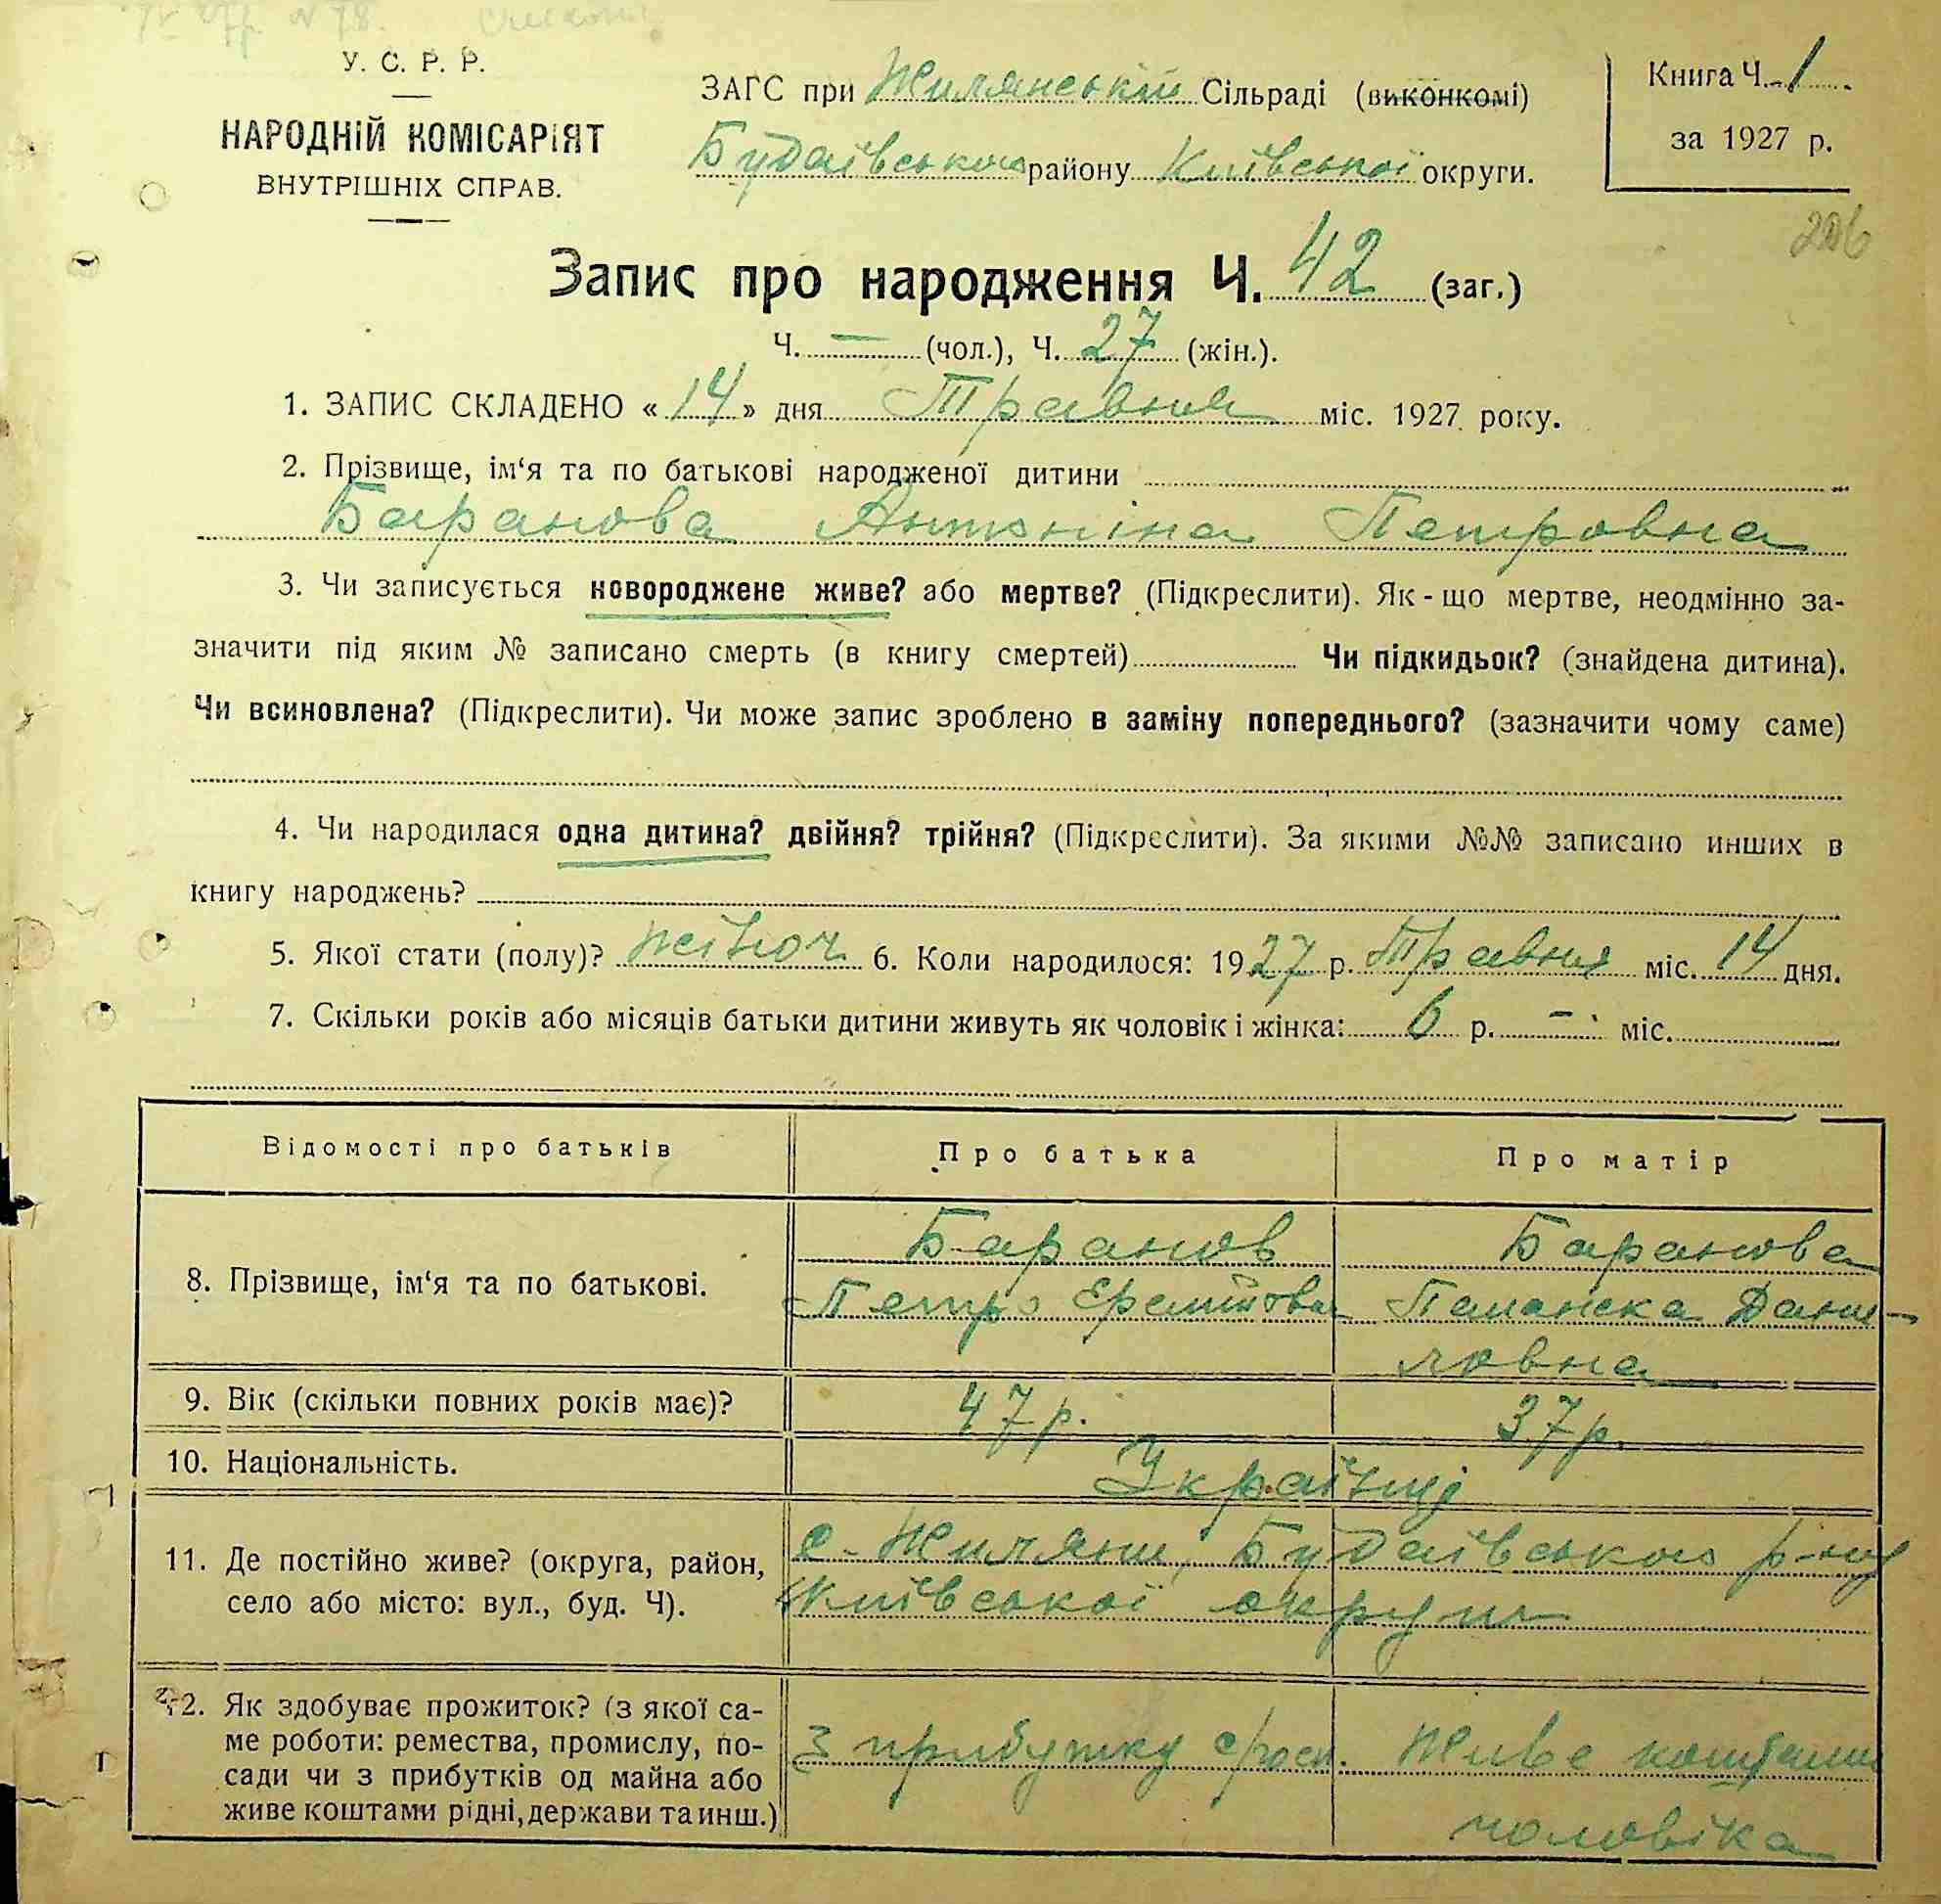 У. С. Р. Р.
НАРОДНІЙ КОМІСАРІЯТ
ВНУТРІШНІХ СПРАВ.
ЗАГС при Жилянській Сільраді (виконкомі)
Будаївського району Київської округи.
Книга Ч. 1
за 1927 р.
206
Запис про народження Ч. 42 (заг.)
Ч. — (чол.), Ч. 27 (жін.).
1. ЗАПИС СКЛАДЕНО « 14 » дня Травня міс. 1927 року.
2. Прізвище, ім‘я та по батькові народженої дитини
Баранова Антоніна Петровна
3. Чи записується новороджене живе? або мертве? (Підкреслити). Як-що мертве, неодмінно за-
значити під яким № записано смерть (в книгу смертей) Чи підкидьок? (знайдена дитина).
Чи всиновлена? (Підкреслити). Чи може запис зроблено в заміну попереднього? (зазначити чому саме)
4. Чи народилася одна дитина? двійня? трійня? (Підкреслити). За якими №№ записано инших в
книгу народжень?
5. Якої стати (полу)? жіноч 6. Коли народилося: 1927 р. Травня міс. 14 дня.
7. Скільки років або місяців батьки дитини живуть як чоловік і жінка: 6 р. — міс.
Відомості про батьків Про батька Про матір
8. Прізвище, ім‘я та по батькові.
Баранов
Петро
Баранова
Дани-
ловна
9. Вік (скільки повних років має)? 47 р. 37 р.
10. Національність. Українці
11. Де постійно живе? (округа, район,
село або місто: вул., буд. Ч).
с. Жиляни, Будаївського р-ну
Київської округи
12. Як здобуває прожиток? (з якої са-
ме роботи: ремества, промислу, по-
сади чи з прибутків од майна або
живе коштами рідні, держави та инш.)
з прибутку с/госп.
Живе коштами
чоловіка